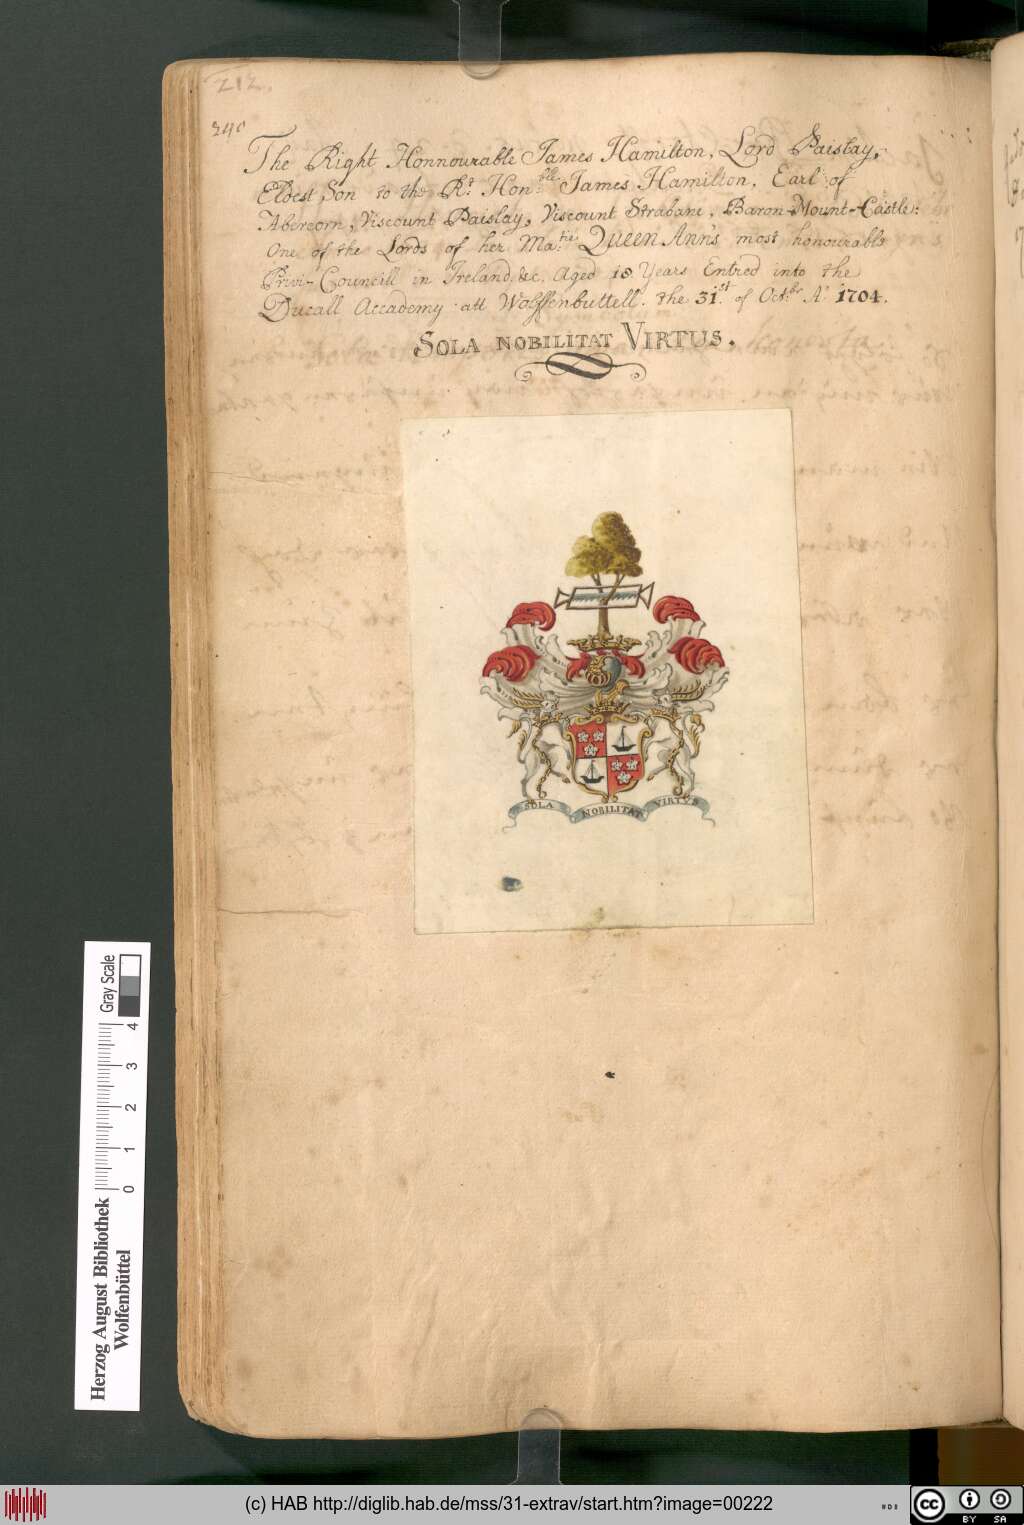 212.
240
The Right Honnourable James Hamilton, Lord Paislay,
Eldest Son to the Rt. Hon:ble James Hamilton, Earl of
Abercorn, Viscount Paislay, Viscount Strabane, Baron-Mount-Castle:
One of the Lords of her Ma:ties Queen Ann's most honourable
Privi-Councill in Ireland &c. Aged 18 Years Entred into the
Ducall Accademy att Wolffenbuttell. the 31st. of Octbr. Ao. 1704.
SOLA NOBILITAT VIRTUS.
SOLA NOBILITAT VIRTVS
Herzog August Bibliothek
Wolfenbüttel
0 1 2 3 4
Gray Scale
(c) HAB http://diglib.hab.de/mss/31-extrav/start.htm?image=00222
cc BY SA